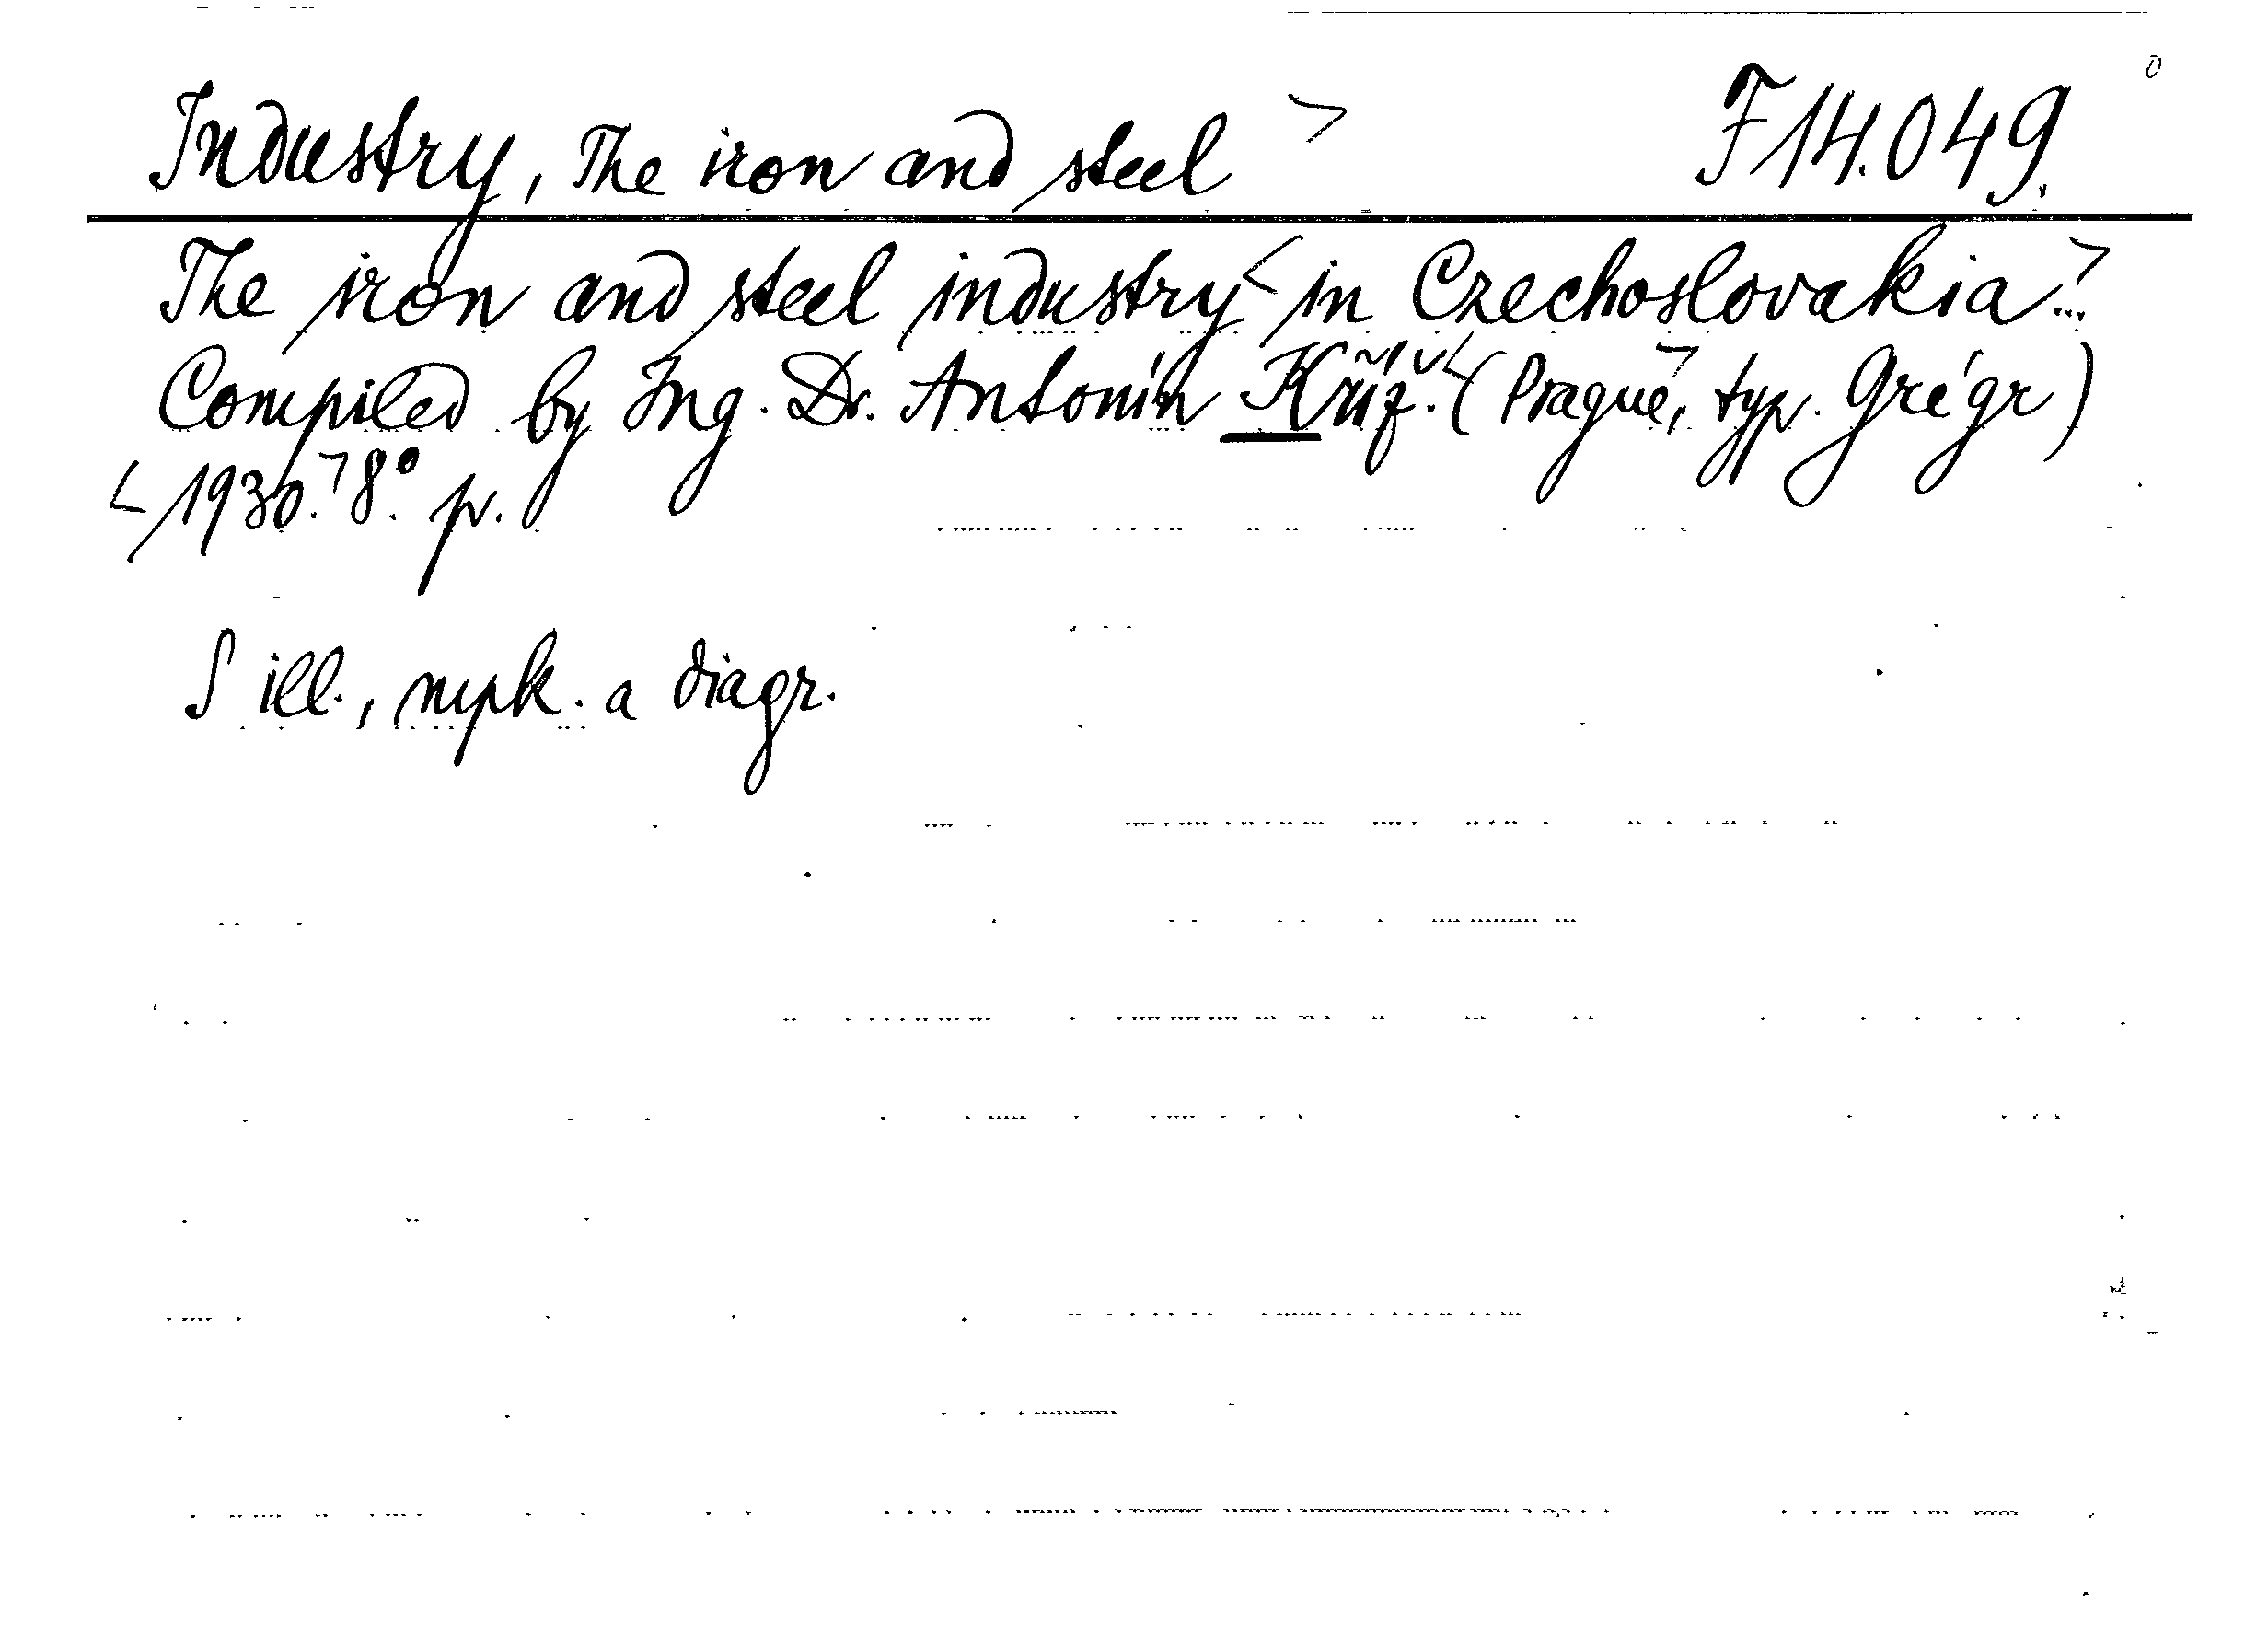 Industry, The iron and steel > F 14.049.
The iron and steel industry < in Czechoslovakia...>
Compiled by Ing. Dr. Antonín Kříž. < (Prague, > typ. Grégr)
< 1930. > 8°. p.
S ill., mpk. a diagr.